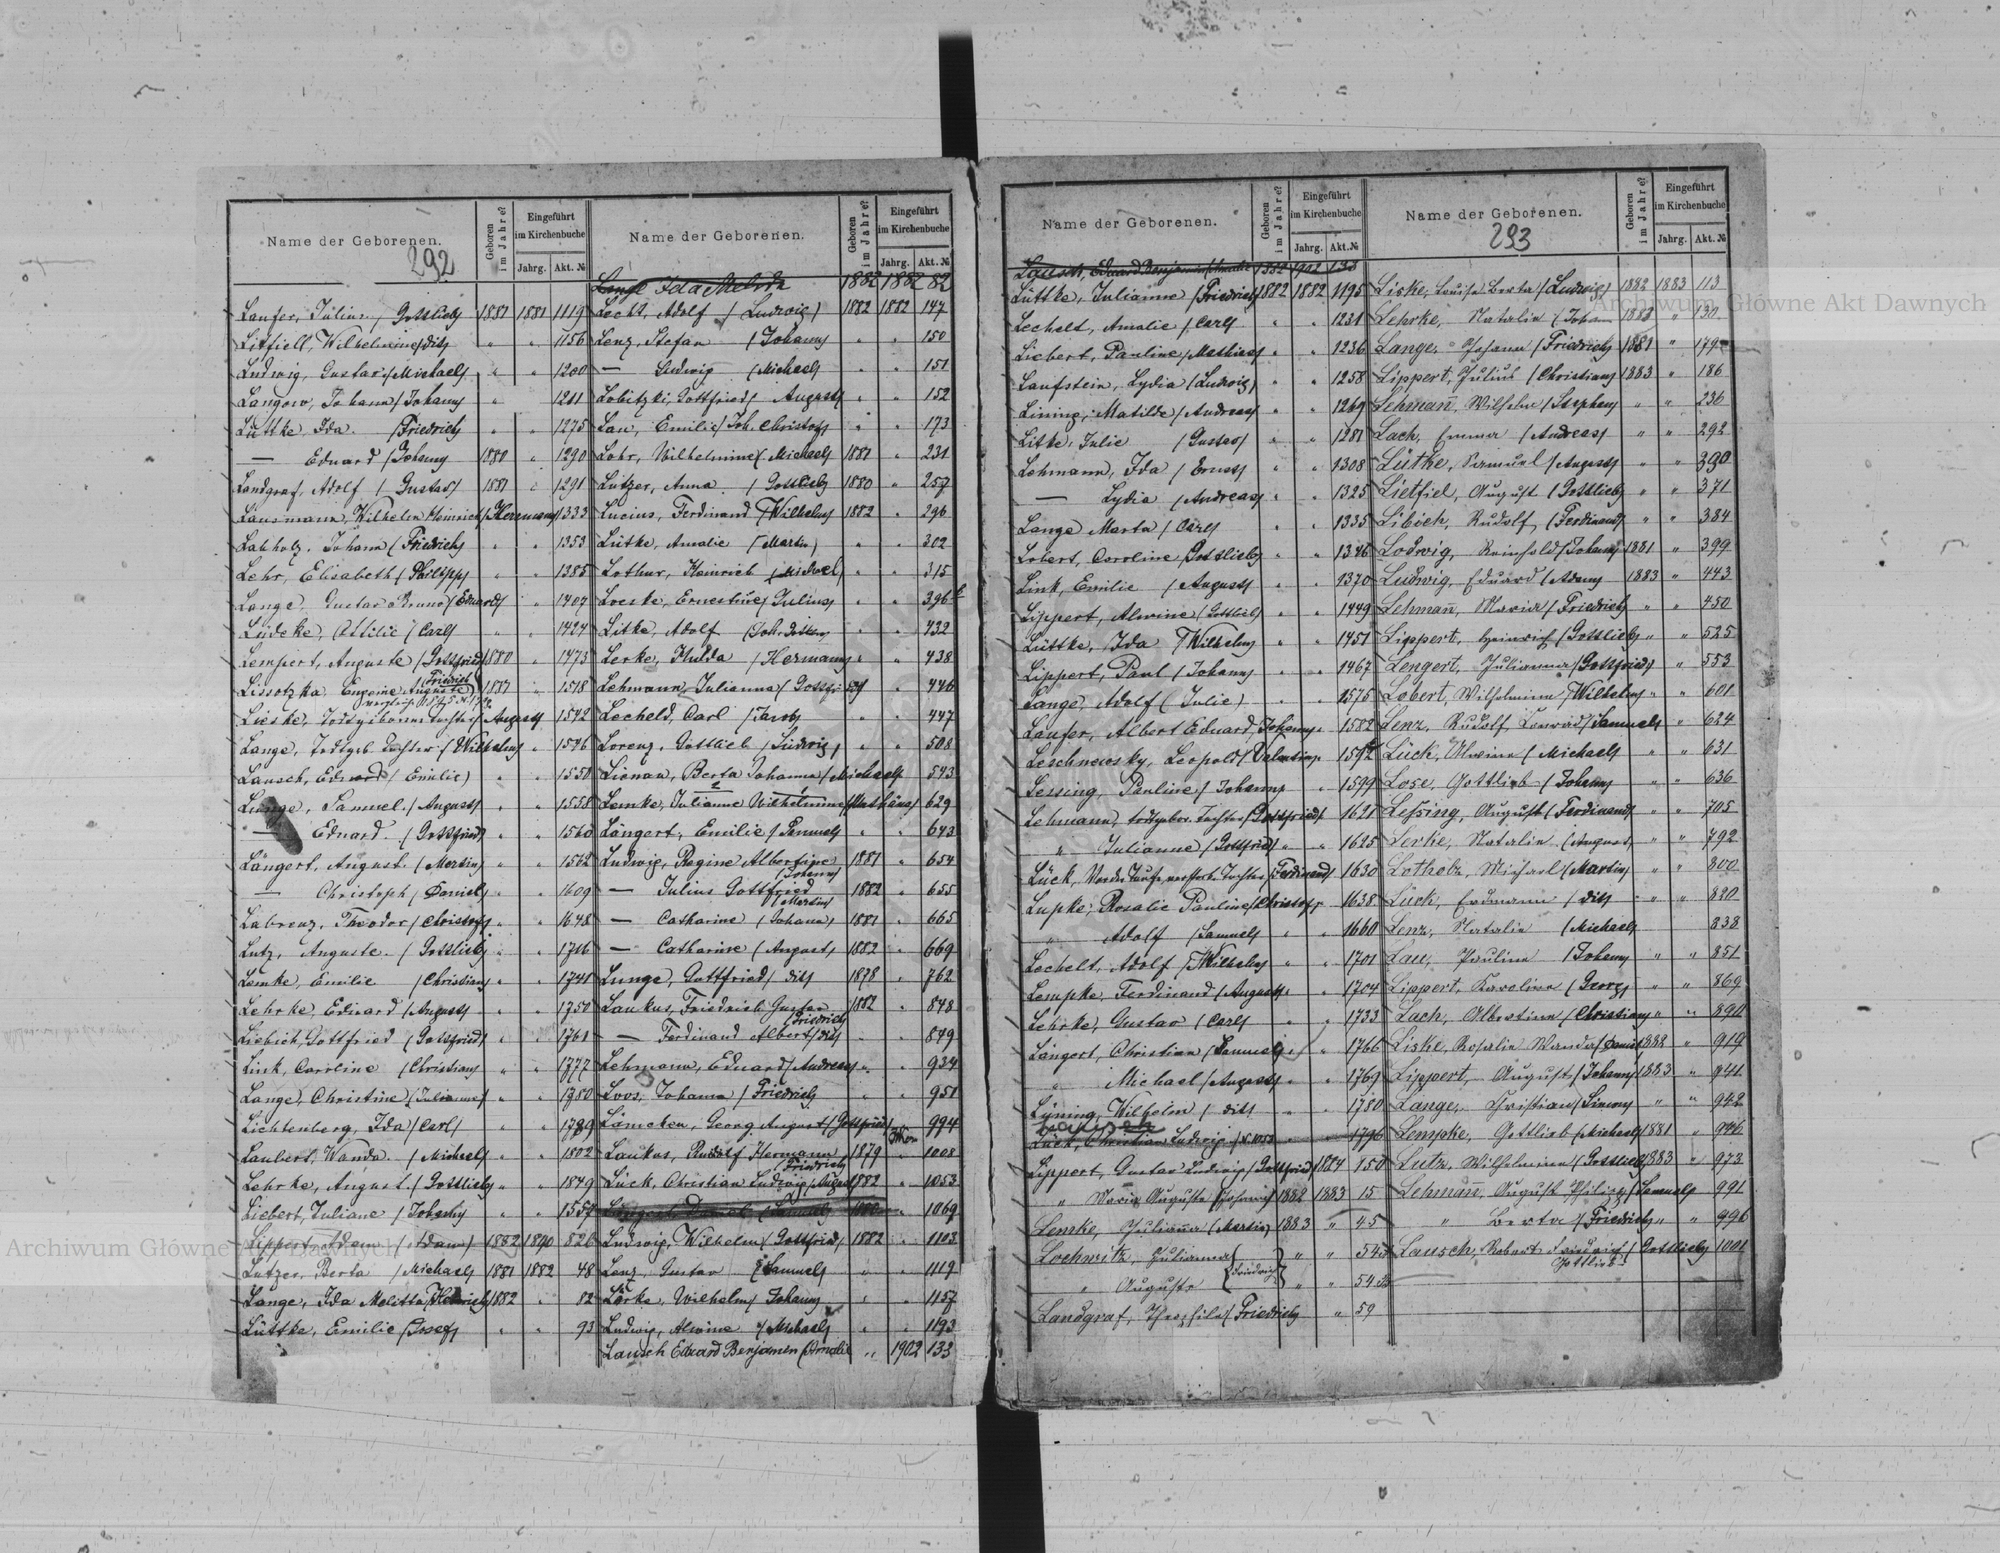 Name der Geborenen.
Geboren im Jahre?
Eingeführt im Kirchenbuche
Jahrg. Akt. №
292
Laufer, Julius / Gottlieb 1881 1881 1119
Litfiell, Wilhelmine / dito " " 1156
Ludwig, Gustav / Michael) " " 1200
Langow, Johann / Johann) " 1211
Lüttke, Ida / Friedrich) " " 1275
— Eduard / Johann) 1880 " 1290
Landgraf, Adolf / Gustav) 1881 " 1291
Lausmann, Wilhelm Heinrich / Herrmann) 1333
Labholz, Johann / Friedrich) " " 1353
Lehr, Elisabeth / Philipp) " " 1385
Lange, Gustav Bruno / Eduard) " 1407
Lüdeke, Ottilie / Carl) " " 1424
Lempert, Auguste / Gottfried) 1880 " 1473
Lissotzka Eugenie Auguste / Friedrich) 1881 " 1518
Lieske, Todtgeborne Tochter / August) 1542
Lange, Todtgeb. Tochter / Wilhelm) " 1546
Lausch, Eduard / Emilie) " " 1550
Lange, Samuel / August) " " 1558
— Eduard / Gottfried) " " 1560
Längert, August / Martin) " " 1562
— Christoph / Daniel) " " 1609
Labrenz, Theodor / Christof) " " 1648
Lutz, Auguste / Gottlieb) " " 1716
Lemke, Emilie / Christian) " " 1741
Lehrke, Eduard / August) " " 1750
Liebich, Gottfried / Gottfried) " " 1761
Link, Carolina / Christian) " " 1777
Lange, Christine / Julianne) " " 1780
Lichtenberg, Ida / Carl) " " 1789
Laubert, Wanda / Michael) " " 1802
Lehrke, August / Gottlieb) " " 1849
Liebert, Juliane / Johann) " " 1557
Lippert, Adam / Adam) 1882 1890 826
Lutzer, Berta / Michael) 1881 1882 48
Lange, Ida Melitta / Heinrich) 1882 " 82
Lüttke, Emilie / Josef) " " 93
Name der Geborenen.
Geboren im Jahre?
Eingeführt im Kirchenbuche
Jahrg. Akt. №
Lange Ida Melitta 1882 1882 82
Lecht, Adolf / Ludwig) 1882 1882 147
Lenz, Stefan / Johann) " " 150
— Ludwig / Michael) " " 151
Lobitzki, Gottfried / August) " " 152
Lau, Emilie / Joh. Christof) " " 173
Lohr, Wilhelmine / Michael) 1881 " 231
Lutzer, Anna / Gottlieb) 1880 " 257
Lucius, Ferdinand / Wilhelm) 1882 " 296
Lütke, Amalie / Martin) " " 302
Lothur, Heinrich / Michael) " " 315
Loeske, Ernestine / Julius) " " 396
Litke, Adolf " " 432
Lerke, Hulda / Hermann) " " 438
Lehmann, Julianna / Gottfried) " 446
Lecheld, Carl / Jacob) " " 447
Lorenz, Gottlieb / Ludwig) " " 508
Lienau, Berta Johanna / Michael) " 543
Lemke, Julianne Wilhelmine / Mathäus) 629
Längert, Emilie / Samuel) " " 643
Ludwig, Regine Albertine / Johann) 1881 " 654
— Julius Gottfried / Martin) 1882 " 655
— Catharine / Johann) 1881 " 665
— Catharine / August) 1882 " 669
Lunge, Gottfried / dito 1878 " 762
Laukus, Friedrich Gustav / Friedrich) 1882 " 848
— Ferdinand Albert / dito " " 849
Lehmann, Eduard / Andreas) " " 934
Loos, Johanna / Friedrich) " " 951
Lämchen, Georg August / Gottfried) 994
Laukus, Rudolf Hermann / Friedrich) 1879 " 1008
Lück, Christian Ludwig / August) 1882 " 1053
1069
Ludwig, Wilhelm / Gottfried) 1882 " 1103
Lenz, Gustav / Samuel) " " 1119
Lerke, Wilhelm / Johann) " " 1157
Ludwig, Alwine / Michael) " " 1193
Lausch Eduard Benjamin / Amalie " 1902 133
Name der Geborenen.
Geboren im Jahre?
Eingeführt im Kirchenbuche
Jahrg. Akt. №
Lausch, Eduard Benjamin / Amalie 1882 1902 133
Lüttke, Julianne / Friedrich) 1882 1882 1195
Lechelt, Amalie / Carl) " " 1231
Liebert, Pauline / Mathias) " " 1236
Laufstein, Lydia / Ludwig) " " 1258
Lining, Matilde / Andreas) " " 1269
Litke, Julie / Gustav) " " 1281
Lehmann, Ida / Ernst) " " 1308
— Lydia / Andreas) " " 1325
Lange Marta / Carl) " " 1335
Lobert, Caroline / Gottlieb) " " 1346
Link, Emilie / August) " " 1370
Lippert, Alwine / Gottlieb) " " 1449
Lüttke, Ida / Wilhelm) " " 1451
Lippert, Paul / Johann) " " 1467
Lange, Adolf / Julie) " " 1575
Laufer, Albert Eduard / Johann) " 1582
Leschnewsky, Leopold / Valentin) " 1592
Lessing, Pauline / Johann) " 1599
Lehmann, todtgebor. Tochter / Gottfried) 1621
" Julianne / Gottfried) " " 1625
Lück, Vor der Taufe verstorb. Tochter / Ferdinand) 1630
Lupke, Rosalie Pauline / Christof) " 1638
" Adolf / Samuel) " " 1660
Lechelt, Adolf / Wilhelm) " " 1701
Lempke, Ferdinand / August) " " 1704
Lehrke, Gustav / Carl) " " 1733
Längert, Christian / Samuel) " " 1766
" Michael / August) " " 1769
Lyning, Wilhelm / dito " " 1780
Lück, Christian Ludwig / № 1053 1796
Lippert, Gustav Ludwig / Gottfried) 1824 150
" Maria Auguste / Johann) 1882 1883 15
Lemke, Julianna / Martin) 1883 " 45
Lochwitz, Julianna " " 54
" Auguste / Friedrich) " " 54
Landgraf, Theophile / Friedrich) " 59
Name der Geborenen.
Geboren im Jahre?
Eingeführt im Kirchenbuche
Jahrg. Akt. №
293
Liske, Louise Berta / Ludwig) 1882 1883 113
Lehrke, Natalie / Johann 1883 " 130
Lange, Johann / Friedrich) 1881 " 179
Lippert, Julius / Christian) 1883 " 186
Lehmann, Wilhelm / Stephan) " " 236
Lach, Emma / Andreas) " " 292
Lütke, Samuel / August) " " 390
Lietfiel, August / Gottlieb) " " 371
Libich, Rudolf / Ferdinand) " " 384
Lodwig, Reinhold / Johann) 1881 " 399
Ludwig, Eduard / Adam) 1883 " 443
Lehmann, Maria / Friedrich) " " 450
Lippert, Heinrich / Gottlieb) " " 525
Lengert, Julianna / Gottfried) " 553
Lobert, Wilhelmine / Wilhelm) " " 601
Lenz, Rudolf Konrad / Samuel) " 624
Lück, Alwine / Michael) " " 631
Lose, Gottlieb / Johann) " " 636
Leßing, August / Ferdinand) " " 705
Lerke, Natalie / August) " " 792
Lotholz, Michael / Martin) " " 800
Lück, Erdmann / dito " " 820
Lenz, Natalie / Michael) 838
Lau, Pauline / Johann) " " 851
Lippert, Karoline / Georg) " " 869
Lach, Albertine / Christian) " " 890
Liske, Rosalie Wanda / Daniel) 1882 " 919
Lippert, August / Johann) 1883 " 941
Lange, Christian / Simon) " " 942
Lempke, Gottlieb / Michael) 1881 " 946
Lutz, Wilhelmine / Gottlieb) 1883 " 973
Lehmann, August Philipp / Samuel) 991
" Berta / Friedrich) " " 996
Lausch, Robert Friedrich Gottlieb / Gottlieb) 1001
Archiwum Główne Akt Dawnych
Archiwum Główne Akt Dawnych